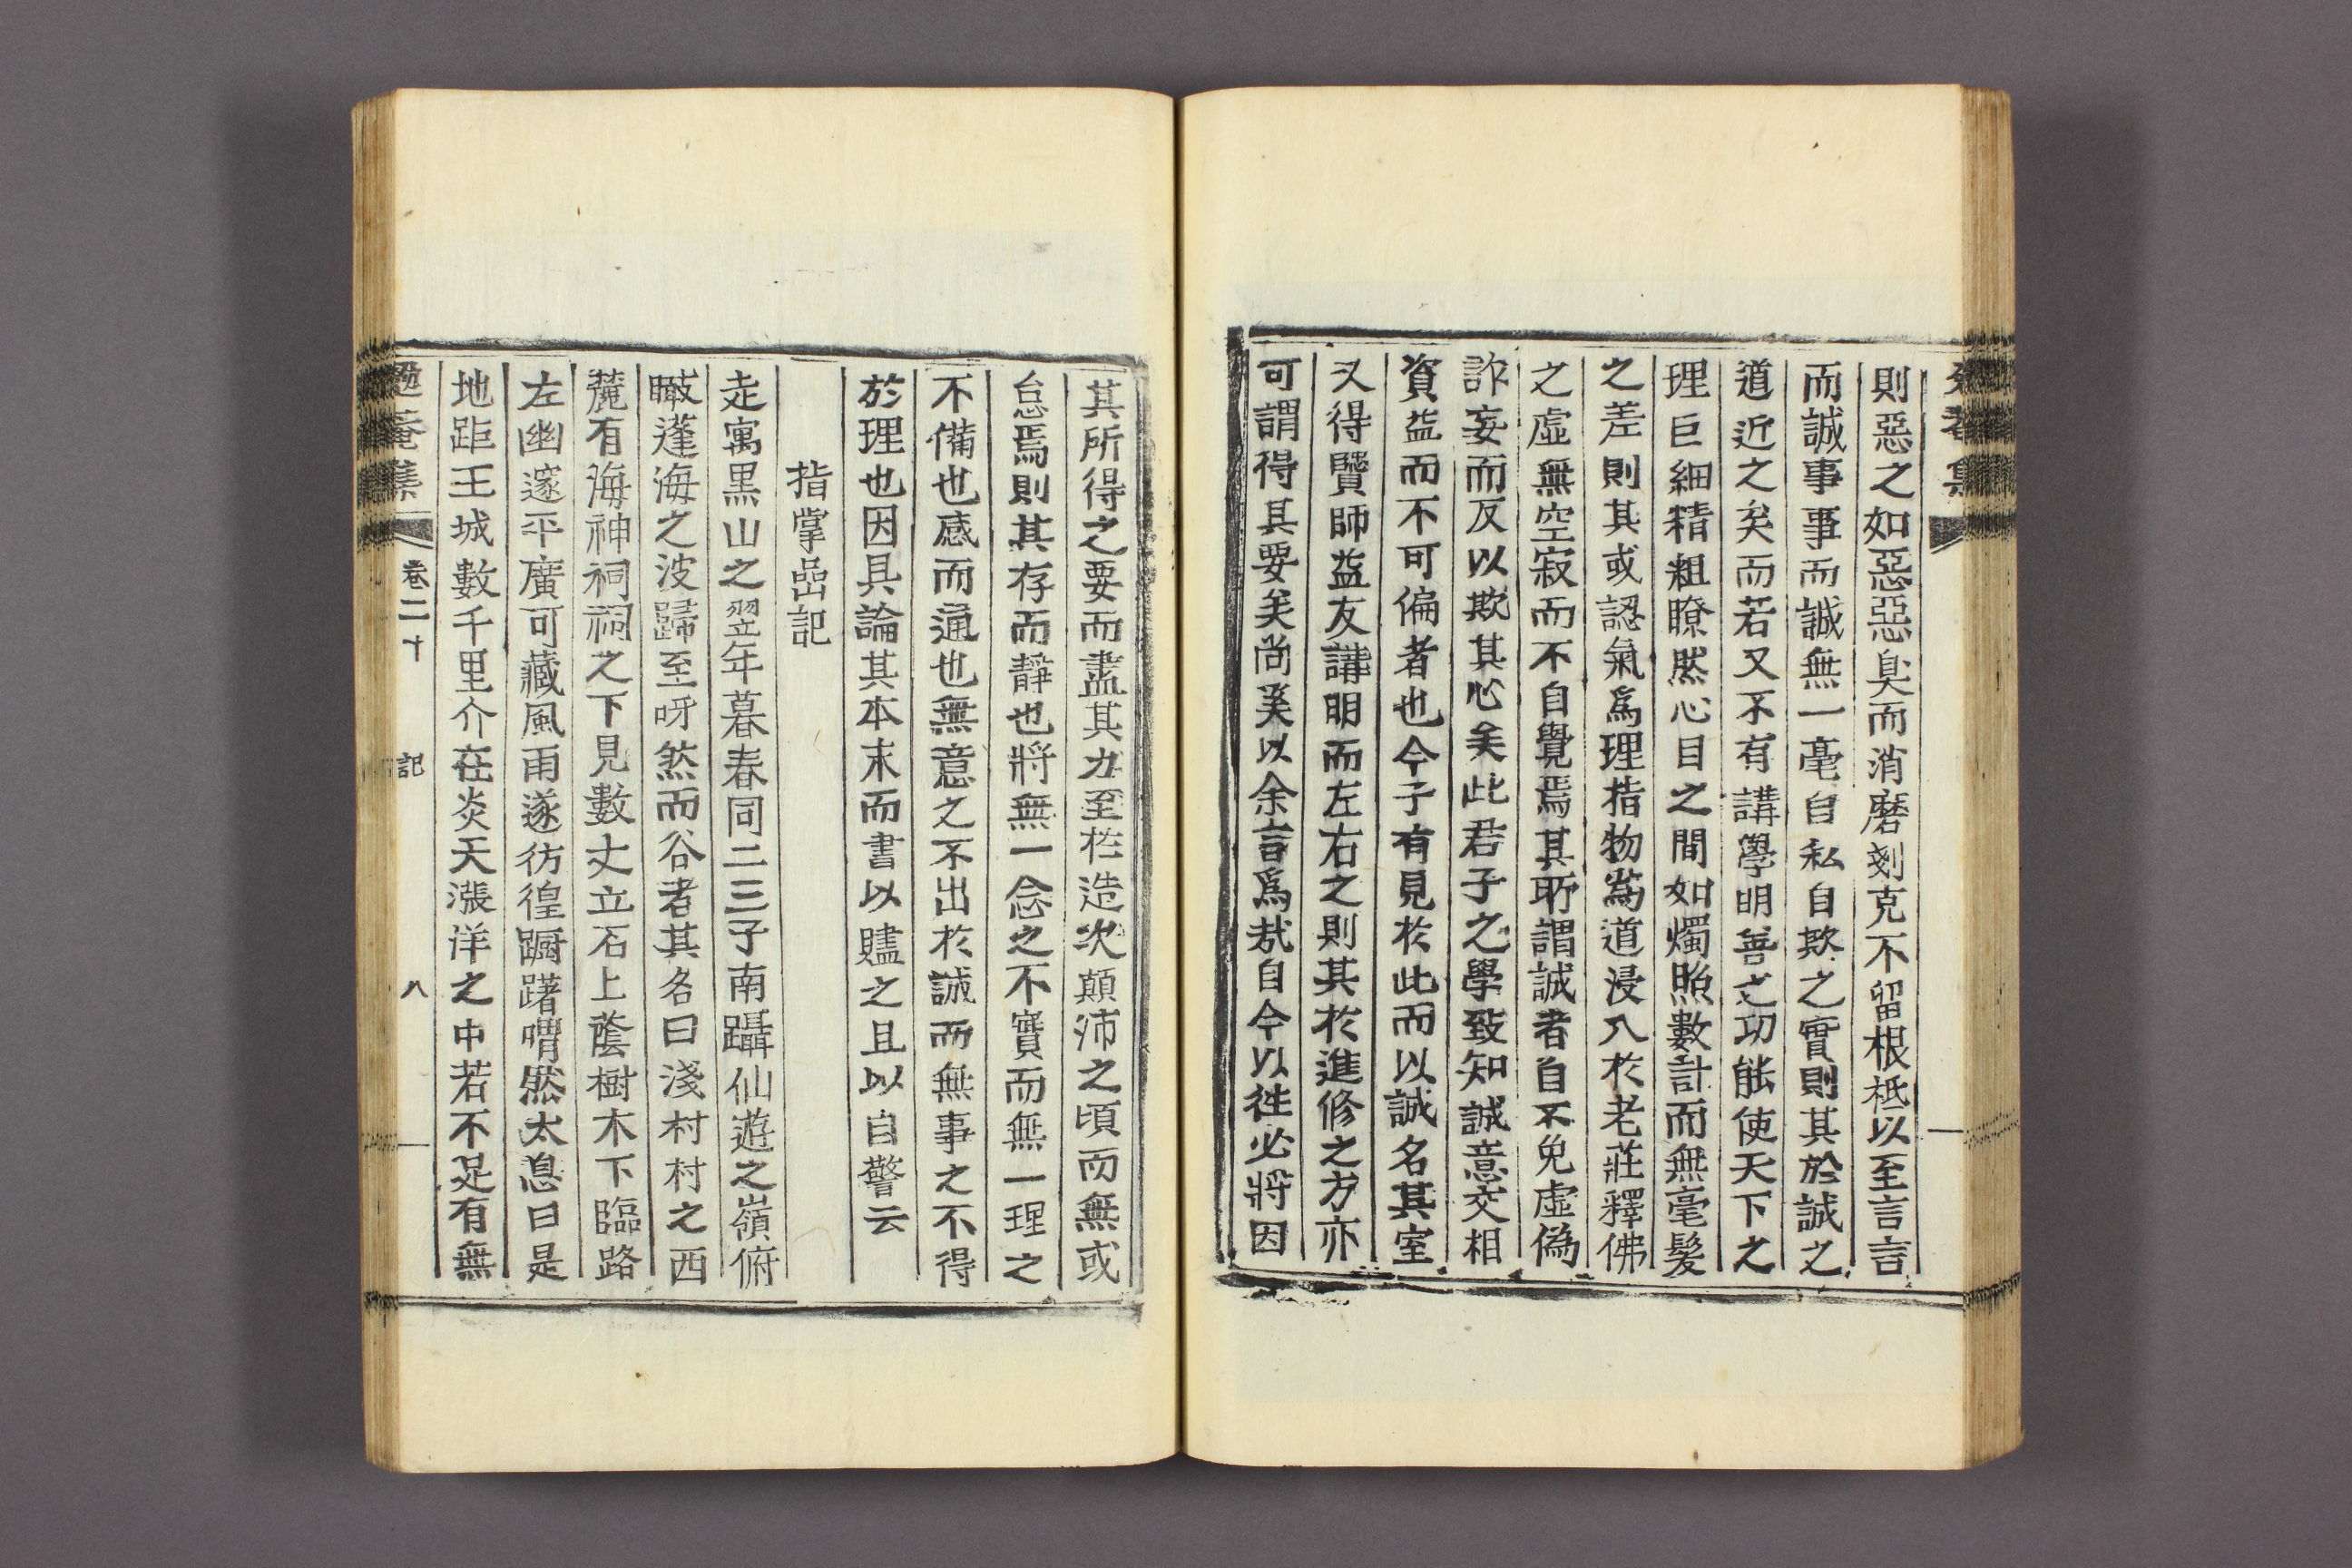 則惡之如惡惡臭而消磨剗克不留根柢以至言言
而誠事事而誠無一毫自私自欺之實則其於誠之
道近之矣而若又不有講學明善之功能使天下之
理巨細精粗瞭然心目之間如燭照數計而無毫髮
之差則其或認氣爲理指物爲道浸入於老莊釋佛
之虛無空寂而不自覺焉其所謂誠者自不免虛僞
詐妄而反以欺其心矣此君子之學致知誠意交相
資益而不可偏者也今子有見於此而以誠名其室
又得賢師益友講明而左右之則其於進修之方亦
可謂得其要矣尚奚以余言爲哉自今以徃必將因
其所得之要而盡其力至於造次顛沛之頃而無或
怠焉則其存而靜也將無一念之不實而無一理之
不備也感而通也無意之不出於誠而無事之不得
於理也因具論其本末而書以贐之且以自警云
指掌嵒記
走寓黑山之翌年暮春同二三子南躡仙遊之嶺俯
瞰蓬海之波歸至呀然而谷者其名曰淺村村之西
麓有海神祠祠之下見數丈立石上蔭樹木下臨路
左幽邃平廣可藏風雨遂彷徨躕躇喟然太息曰是
地距王城數千里介在炎天漲洋之中若不足有無
勉菴集
卷二十
記
八